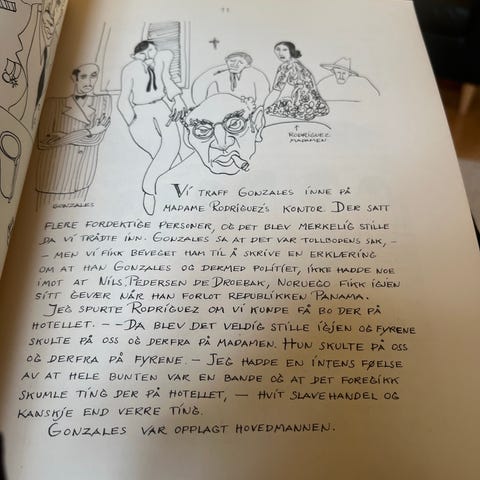 11
↑
RODRIGUEZ
MADAMEN
GONZALES
VI TRAFF GONZALES INNE PÅ
MADAME RODRIGUEZ'S KONTOR. DER SATT
FLERE FORDEKTIGE PERSONER, OG DET BLEV MERKELIG STILLE
DA VI TRÅDTE INN. GONZALES SA AT DET VAR TOLLBODENS SAK, –
– MEN VI FIKK BEVEGET HAM TIL Å SKRIVE EN ERKLÆRING
OM AT HAN GONZALES OG DERMED POLITIET, IKKE HADDE NOE
IMOT AT NILS PEDERSEN DE DROEBAK, NORUEGO FIKK IGJEN
SITT GEVÆR NÅR HAN FORLOT REPUBLIKKEN PANAMA.
JEG SPURTE RODRIGUEZ OM VI KUNDE FÅ BO DER PÅ
HOTELLET. – – DA BLEV DET VELDIG STILLE IGJEN OG FYRENE
SKULTE PÅ OSS OG DERFRA PÅ MADAMEN. HUN SKULTE PÅ OSS
OG DERFRA PÅ FYRENE. – JEG HADDE EN INTENS FØELSE
AV AT HELE BUNTEN VAR EN BANDE OG AT DET FOREGIKK
SKUMLE TING DER PÅ HOTELLET, – HVIT SLAVEHANDEL OG
KANSKJE END VERRE TING.
GONZALES VAR OPPLAGT HOVEDMANNEN.